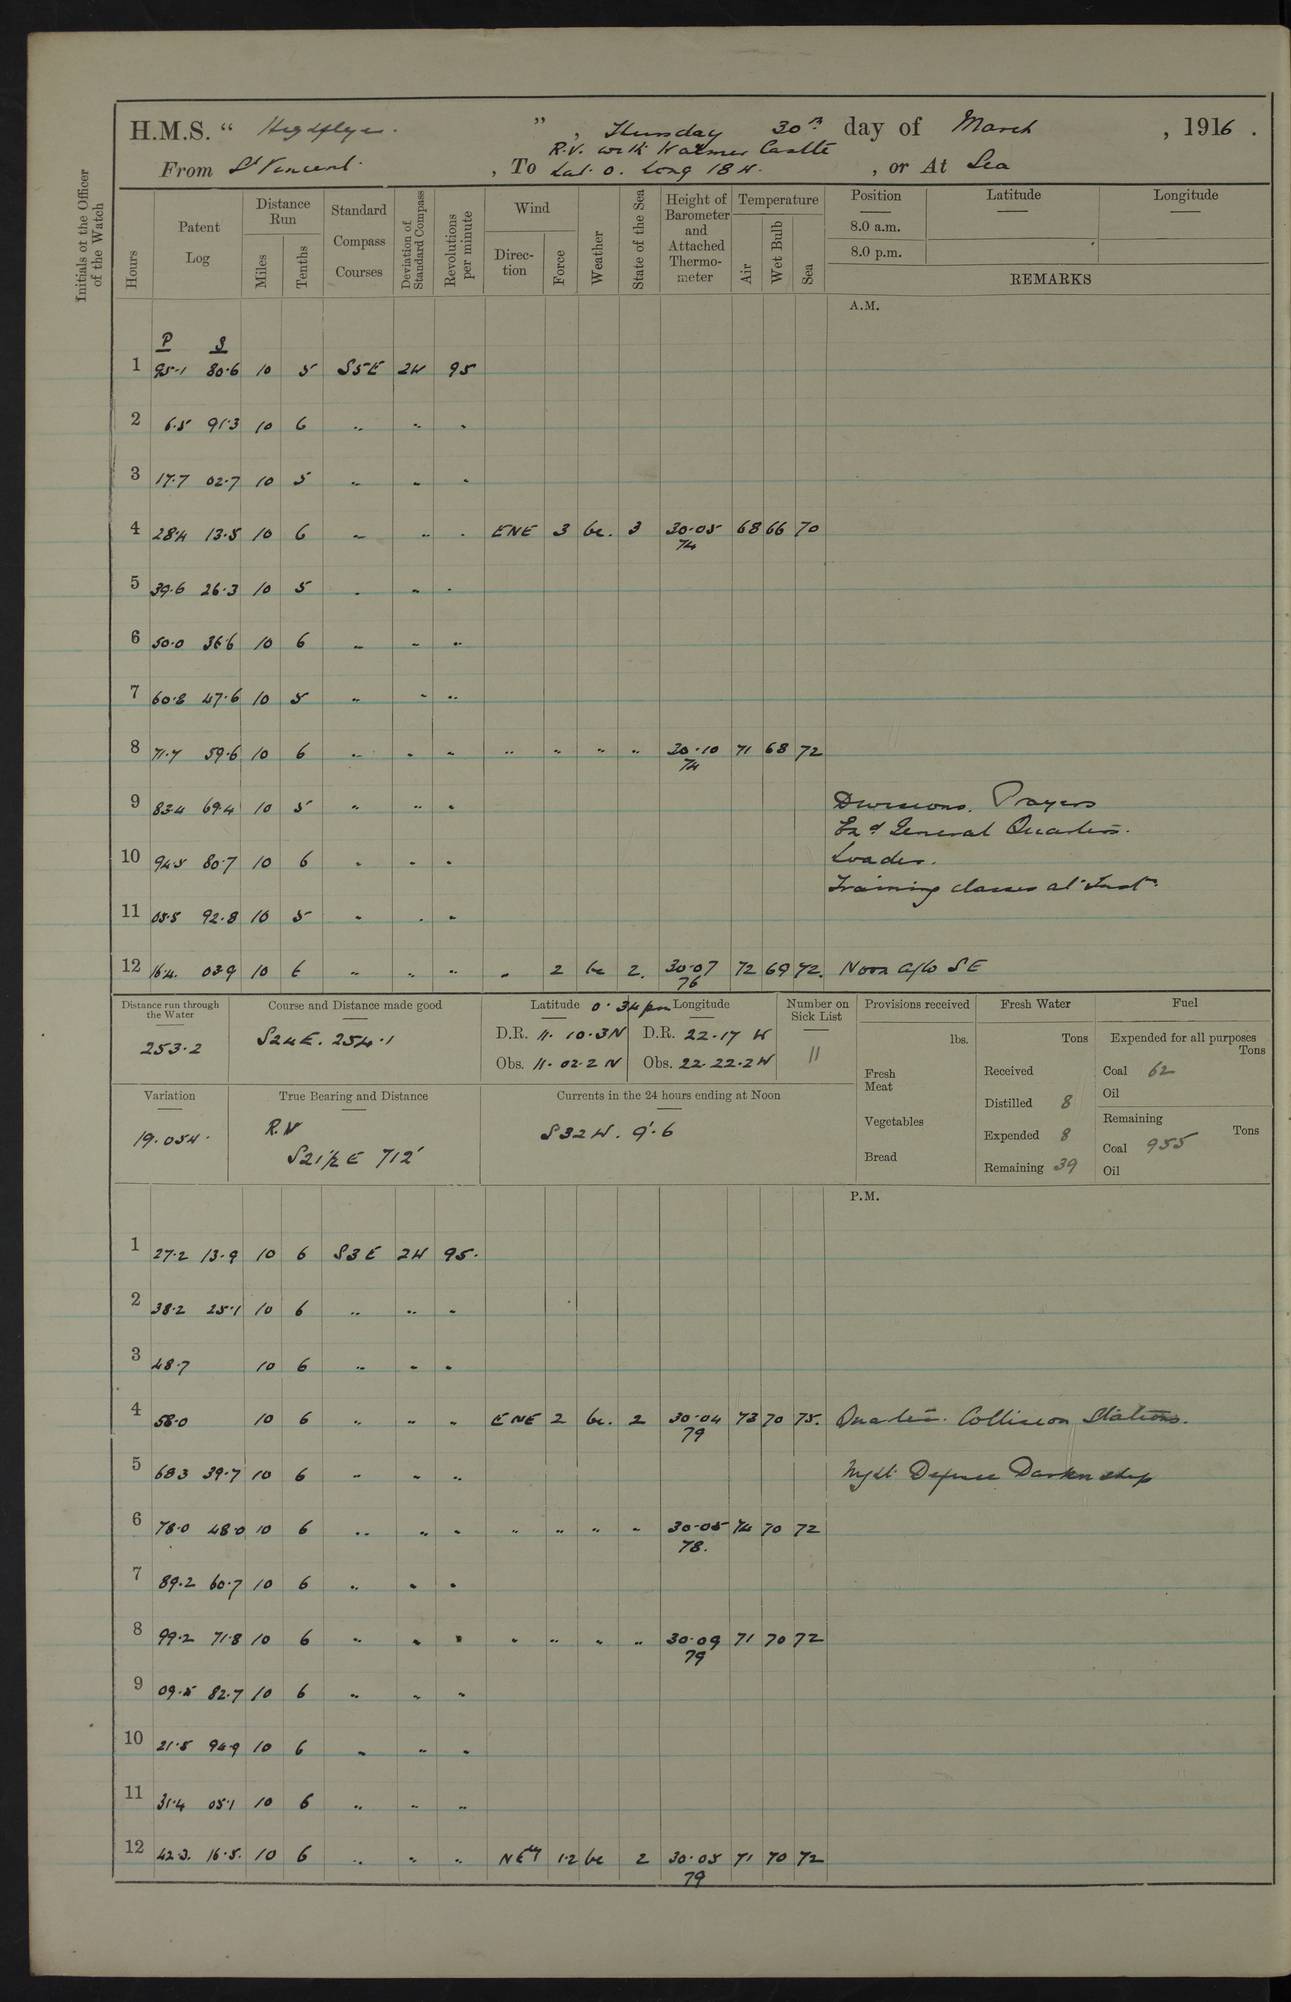 H.M.S. “ Highflyer. ” , Thursday 30th day of March , 1916 .
R.V. with Walmer Castle
From St Vincent , To Lat. 0. Long 18 W. , or At Sea
Initials of the Officer of the Watch
Hours Patent Log Distance Run Miles Tenths Standard Compass Courses Deviation of Standard Compass Revolutions per minute Wind Direction Force Weather State of the Sea Height of Barometer and Attached Thermometer Temperature Air Wet Bulb Sea Position Latitude Longitude
8.0 a.m.
8.0 p.m.
REMARKS
A.M.
P S
1 95.1 80.6 10 5 S5E 2W 95
2 6.5 91.3 10 6 " " "
3 17.7 02.7 10 5 " " "
4 28.4 13.5 10 6 " " " ENE 3 bc. 3 30.05 68 66 70
74
5 39.6 26.3 10 5 " " "
6 50.0 36.6 10 6 " " "
7 60.8 47.6 10 5 " " "
8 71.7 59.6 10 6 " " " " " " " 30.10 71 68 72
74
9 83.4 69.4 10 5 " " " Divisions. Prayers
Exd General Quarters.
10 94.5 80.7 10 6 " " " Loader.
Training classes at Inst.
11 05.5 92.8 10 5 " " "
12 16.4. 03.9 10 6 " " " " 2 bc 2. 30.07 72 69 72. Noon a/co SE
76
Distance run through the Water
253.2
Course and Distance made good
S24E. 254.1
Latitude 0.34pm Longitude
D.R. 11. 10.3N D.R. 22.17 W
Obs. 11. 02.2 N Obs. 22. 22.2W
Number on Sick List
11
Provisions received
lbs.
Fresh Meat
Vegetables
Bread
Fresh Water
Tons
Received
Distilled 8
Expended 8
Remaining 39
Fuel
Expended for all purposes
Tons
Coal 62
Oil
Remaining
Tons
Coal 955
Oil
Variation
19.054.
True Bearing and Distance
R.V
S21½E 712'
Currents in the 24 hours ending at Noon
S32W. 9'.6
P.M.
1 27.2 13.9 10 6 S3E 2W 95.
2 38.2 25.1 10 6 " " "
3 48.7 10 6 " " "
4 58.0 10 6 " " " ENE 2 bc. 2 30.04 73 70 75. Quarters. Collision Stations.
79
5 68.3 39.7 10 6 " " " Night Defence Darken ship
6 78.0 48.0 10 6 " " " " " " " 30.05 74 70 72
78.
7 89.2 60.7 10 6 " " "
8 99.2 71.8 10 6 " " " " " " " 30.09 71 70 72
79
9 09.5 82.7 10 6 " " "
10 21.5 94.9 10 6 " " "
11 31.4 05.1 10 6 " " "
12 42.3. 16.5. 10 6 " " " NEly 1.2 bc 2 30.05 71 70 72
79